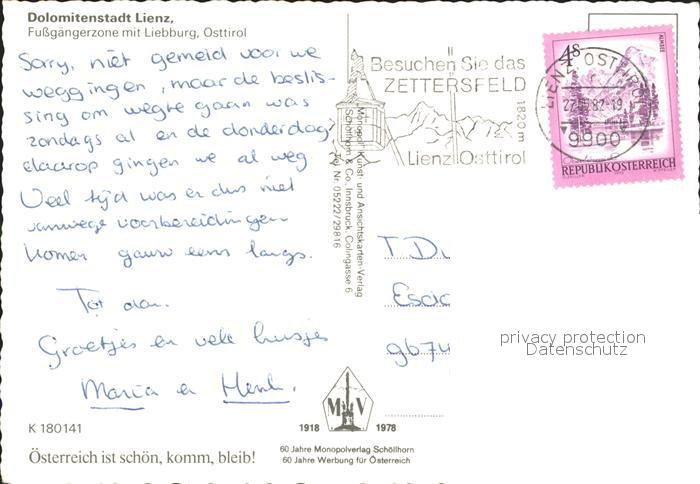 Dolomitenstadt Lienz,
Fußgängerzone mit Liebburg, Osttirol
Sorry, niet gemeld voor we
weggingen, maar de beslis-
sing om weg te gaan was
zondags al en de donderdag
daarop gingen we al weg
Veel tijd was er dus niet
vanwege voorbereidingen
Komen gauw eens langs.
Tot dan.
Groetjes en vele kusjes
Maria en Henk.
K 180141
Österreich ist schön, komm, bleib!
Besuchen Sie das
ZETTERSFELD
1820 m
Lienz Osttirol
Monopol Kunst- und Ansichtskarten-Verlag
Schöllhorn & Co, Innsbruck, Colingasse 6
Tel. Nr. 05222/29816
4S
ALMSEE
LIENZ, OSTTIROL
82-19
9900
REPUBLIK ÖSTERREICH
T. D
Escic
9674
privacy protection
Datenschutz
M V
1918 1978
60 Jahre Monopolverlag Schöllhorn
60 Jahre Werbung für Österreich